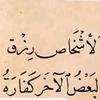 لأشخاص رزق
لبعض الآخر كفارة